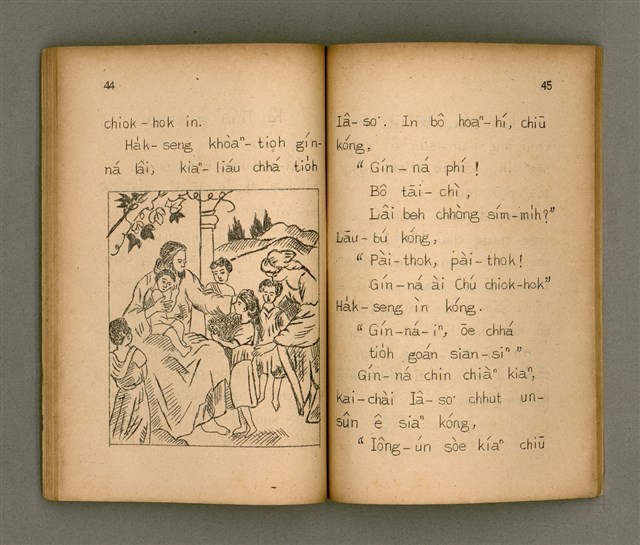 44
chiok-hok in.
Ha̍k-seng khòaⁿ-tio̍h gín-
ná lâi, kiaⁿ-liáu chhá tio̍h
45
Iâ-so͘. In bô hoaⁿ-hí, chiū
kóng,
“ Gín-ná phí !
Bô tāi-chì,
Lâi beh chhòng sím-mi̍h?”
Lāu-bú kóng,
“ Pài-thok, pài-thok!
Gín-ná ài Chú chiok-hok”
Ha̍k-seng ìn kóng.
“ Gín-ná-iⁿ, ōe chhá
tio̍h goán sian-siⁿ ”
Gín-ná chin chiàⁿ kiaⁿ,
kai-chài Iâ-so͘ chhut un-
sûn ê siaⁿ kóng,
“ Iông-ún sòe kíaⁿ chiū